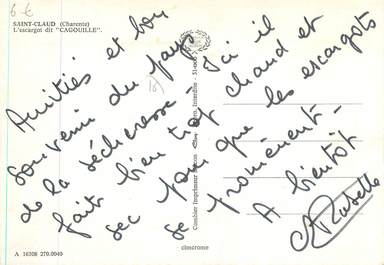 6 €
SAINT-CLAUD (Charente)
L'escargot dit "CAGOUILLE".
Amitiés et bon
souvenir du pays
de la sécheresse ! Ici il
fait bien trop chaud et
sec pour que les escargots
se promènent -
A bientôt
Combier Imprimeur Mâcon
A 16308 270.0040
cimcrome